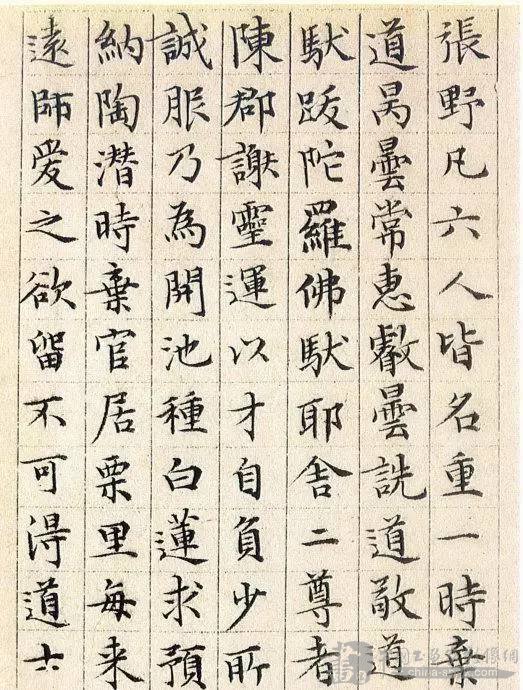 張野凡六人皆名重一時棄
道昺曇常惠叡曇詵道敬道
馱跋陀羅佛馱耶舍二尊者
陳郡謝靈運以才自負少所
誠服乃為開池種白蓮求預
納陶潜時棄官居栗里每来
遠師愛之欲留不可得道士